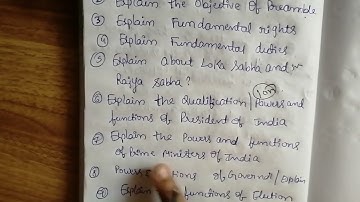 ② Explain the Objectives Of Preamble
③ Explain Fundamental rights
④ Explain Fundamental duties
⑤ Explain about Loka Sabha and
Rajya Sabha?
⑥ Explain the Qualification/Powers and
functions of President of India
⑦ Explain the Powers and functions
of Prime Ministers Of India
⑧ Powers functions of Governor/Explain
⑨ Explain functions of Election